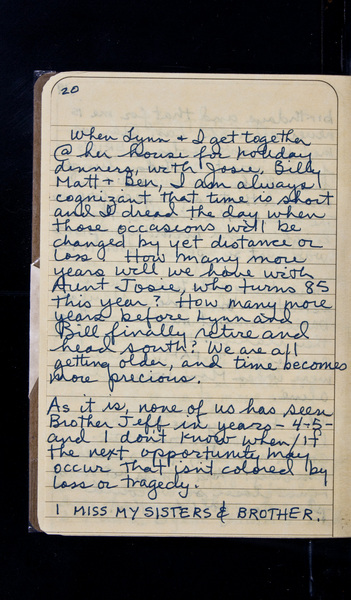 20
When Lynn + I get together
@ her house for holiday
dinners, with Josie, Billy
Matt + Ben, I am always
cognizant that time is short
and I dread the day when
those occasions will be
changed by yet distance or
loss. How many more
years will we have with
Aunt Josie, who turns 85
this year? How many more
years before Lynn and
Bill finally retire and
head south? We are all
getting older, and time becomes
more precious.
As it is, none of us has seen
Brother Jeff in years - 4-5 -
and I don't know when/if
the next opportunity may
occur that isn't colored by
loss or tragedy.
I MISS MY SISTERS & BROTHER.